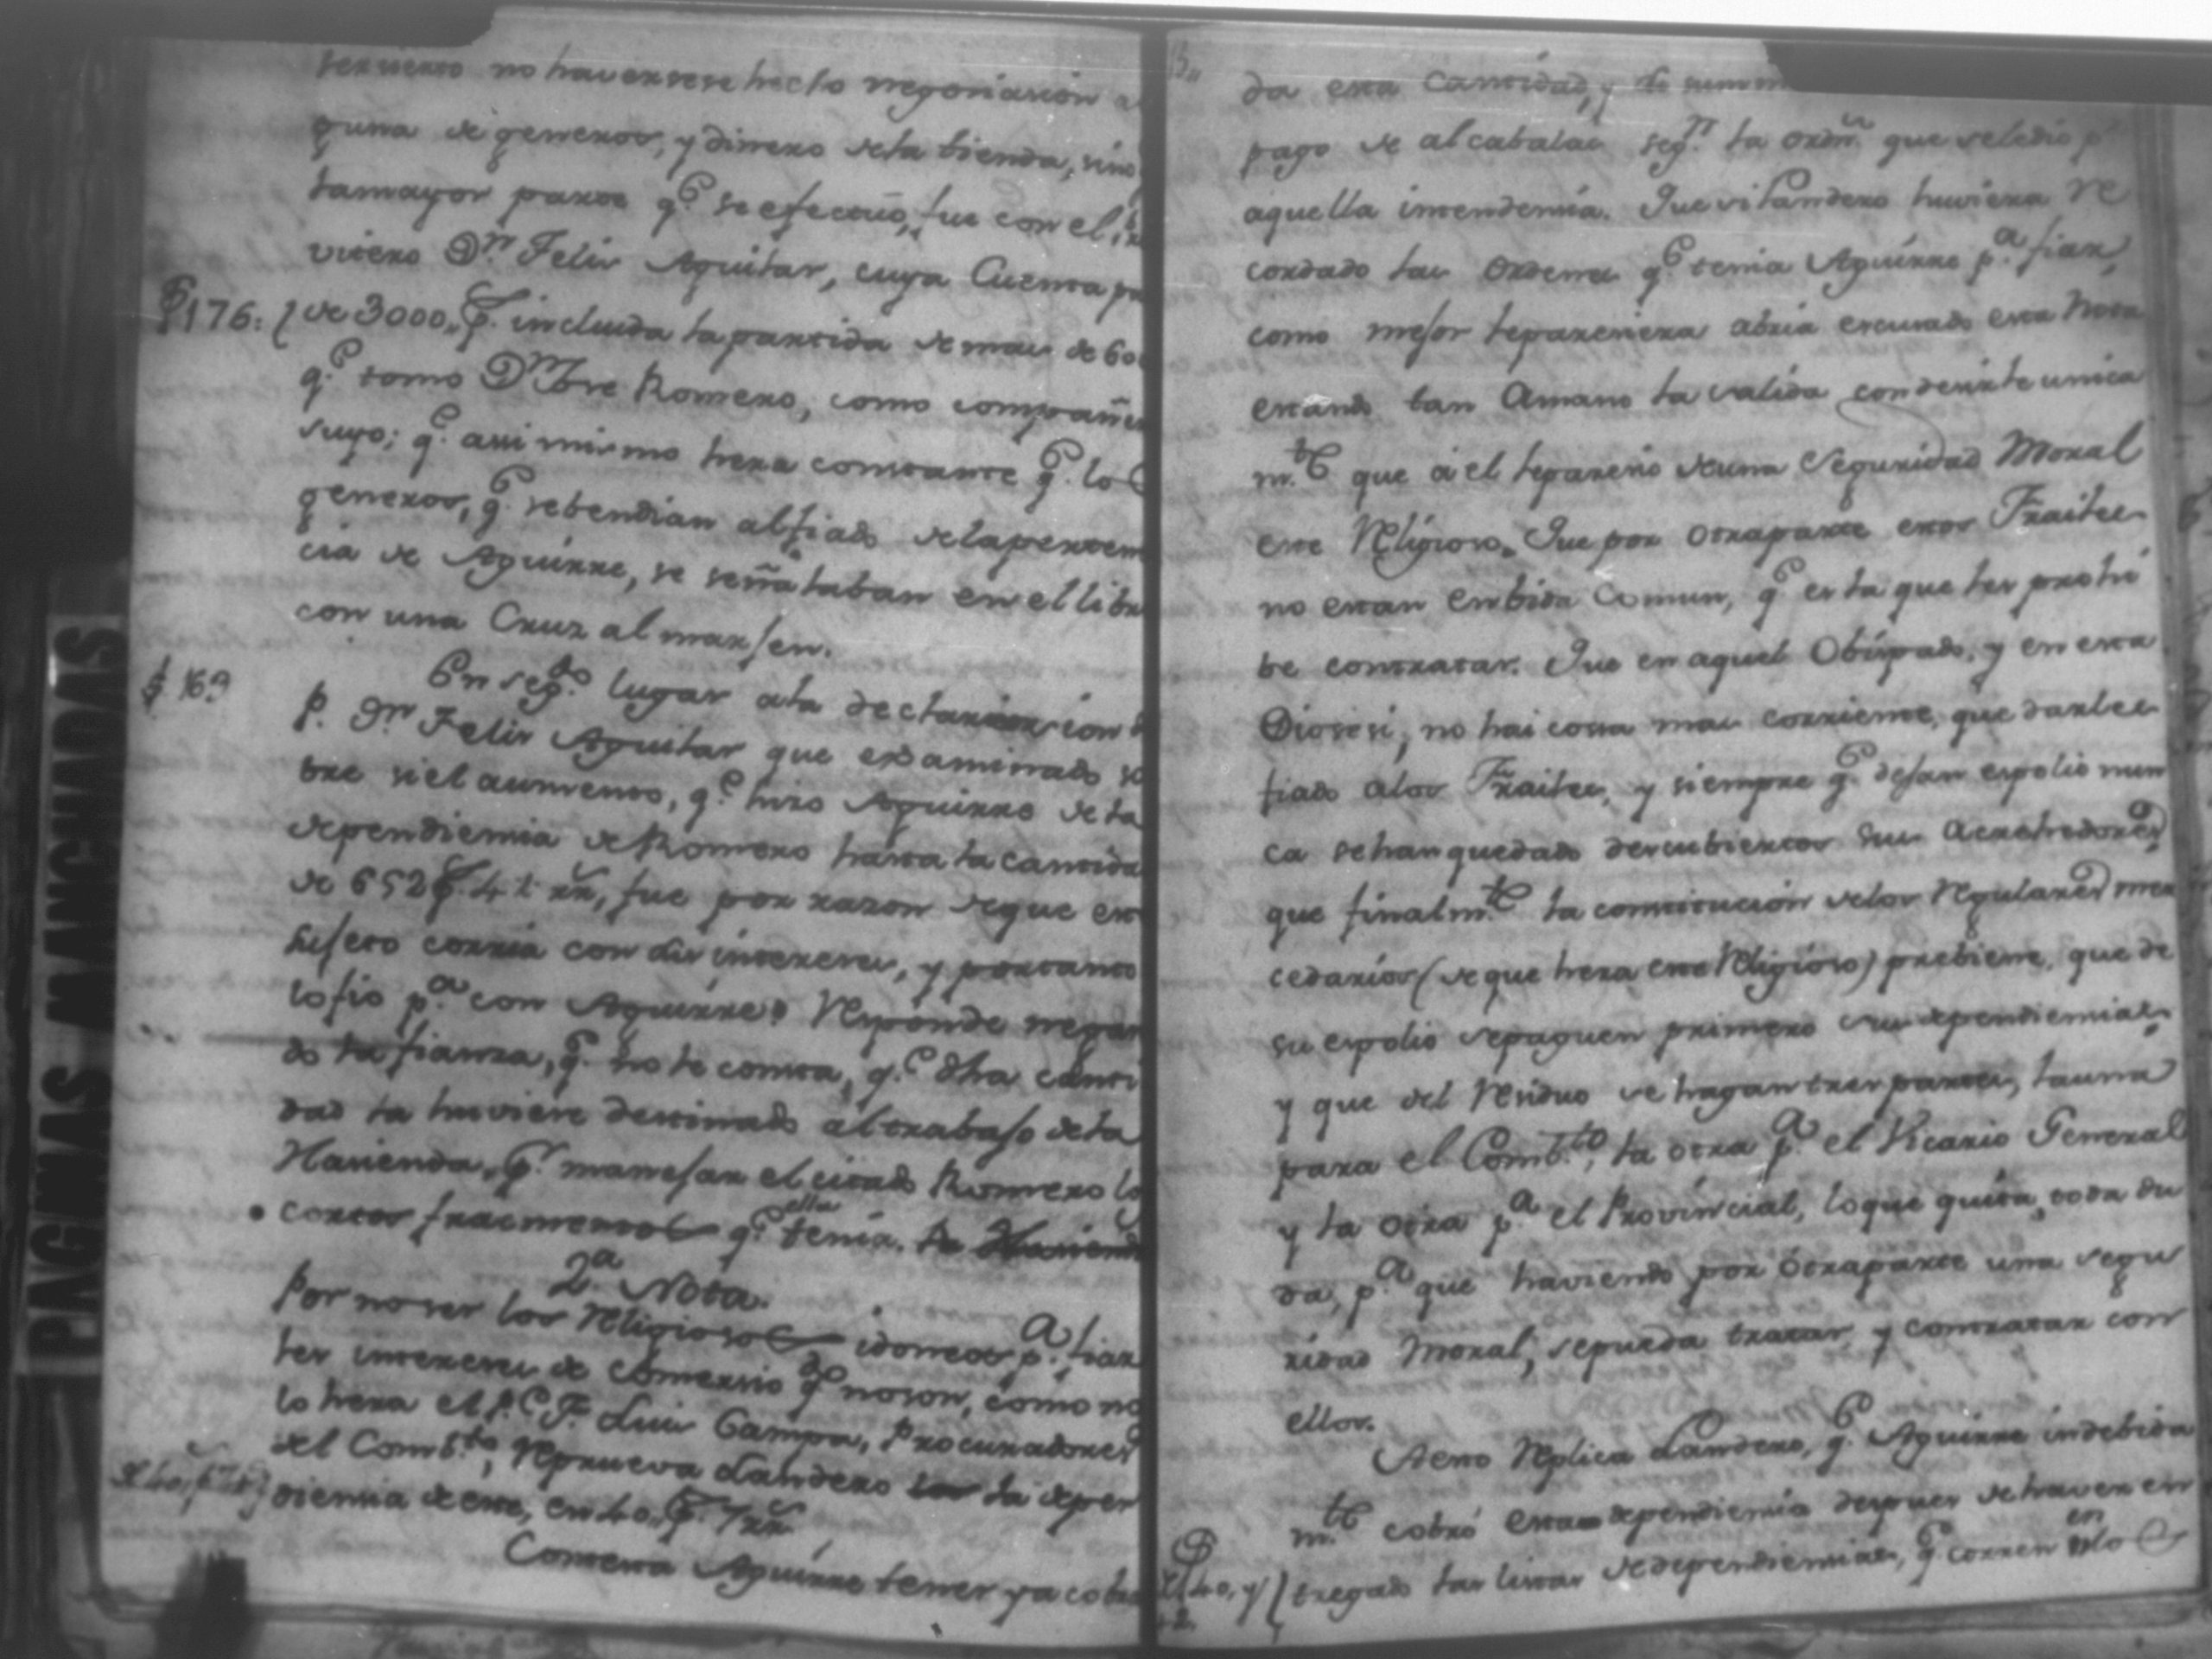 no haverse hecho negociacion a
guna de generos, y dinero de la tienda, sino
la mayor parte q.e se efectuó, fue con el
vitero D.n Felix Aguilar, cuya Cuenta pa
176: de 3000,, p.s incluida la partida de mas de 60
q.e tomo D.n Jose Romero, como compañe
suyo; q.e assi mismo hera constante q.e lo
generos, q.e se bendian al fiado de la perten
cia de Aguirre, se señalaban en el libr
con una Cruz al marjen.
169 En seg.do lugar a la declaracion d
P. D.n Felix Aguilar que examinado so
bre si el aumento, q.e hizo Aguirre de la
dependiencia de Romero hasta la cantida
de 652 p.s 4 rr, fue por razon de que est
sujeto corria con sus intereses, y por tanto
lo fio p.a con Aguirre? Responde negan
do la fianza, q.e no le consta, q.e dha canti
dad la huviese destinado al trabajo de la
Hacienda, q.e manejar el citado Romero lo
cortos fracmentos q.e ella tenia. la Hacienda
2.a Nota.
Por no ser los Religiosos idoneos p.a fiar
les intereses de Comersio q.e no son, como no
lo hera el P.e F. Luis Campa, Procurador
del Comb.to, Reprueva Landero la depen
diencia de este, en 40,, p.s 7 rr
Contesta Aguirre tener ya cobra
PAGINAS MANCHADAS
da esta Cantidad, y
pago de alcabalas seg.n la ordn que se le dio p.r
aquella intendencia. Que si Landero huviera re
cordado las ordenes q.e tenia Aguirre p.a fiar,
como mejor le pareciera abria escusado esta Nota
estando tan Amano la salida con desirle unica
m.te que á el le parecio de una Seguridad Moral
este Religioso. Que por otra parte estos Frailes
no estan en bida Comun, q.e es la que les prohi
be contratar. Que en aquel Obispado, y en esta
Diosesi, no hai cossa mas corriente, que darles
fiado a los Frailes, y siempre q.e dejan espolio nun
ca se han quedado descubiertos sus Acrehedores,
que finalm.te la constitucion de los Regulares mer
cedarios (de que hera este Religioso) prebiene, que de
su espolio se paguen primero sus dependiencias,
y que del Residuo se hagan tres partes, la una
para el Comb.to, la otra p.a el Vicario General
y la otra p.a el Provincial, lo que quita, toda du
da, p.a que haviendo por otra parte una segu
ridad Moral, se pueda tratar, y contratar con
ellos.
A esto Replica Landero, q.e Aguirre indebida
m.te cobró esta dependiencia despues de haver en
tregado las listas de dependiencias, q.e corren en lo